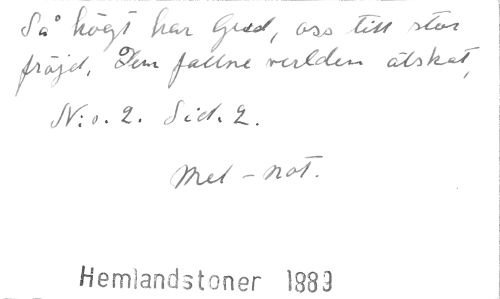 Så högt har Gud, oss till stor
fröjd, Dem fallne verlden älskat,
N:o. 2. Sid. 2.
Mel - not.
Hemlandstoner 1889